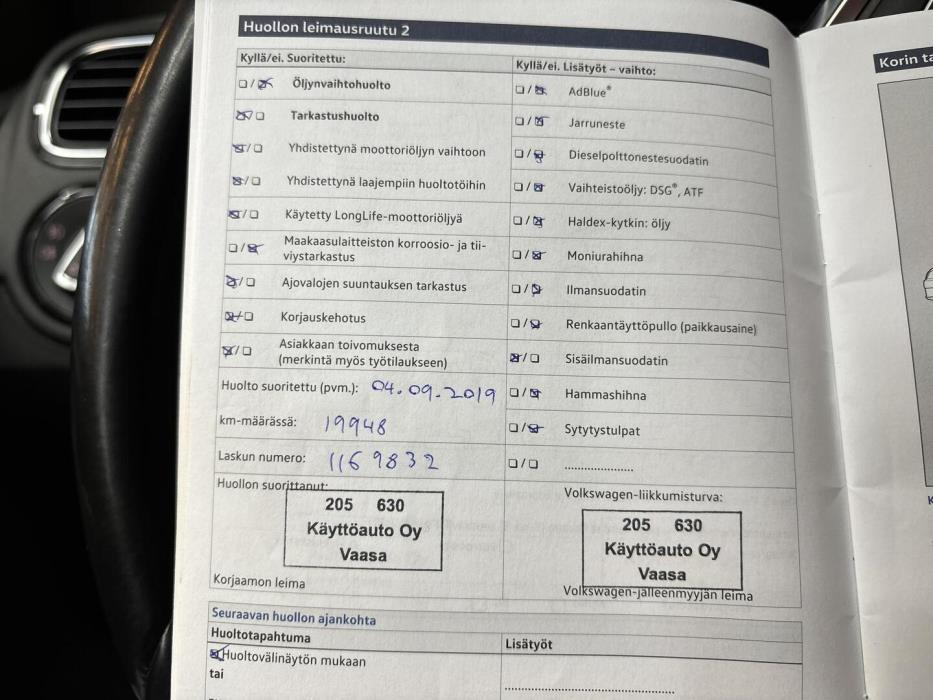 Huollon leimausruutu 2
Kyllä/ei. Suoritettu:
Öljynvaihtohuolto
Tarkastushuolto
Yhdistettynä moottoriöljyn vaihtoon
Yhdistettynä laajempiin huoltotöihin
Käytetty LongLife-moottoriöljyä
Maakaasulaitteiston korroosio- ja tii-
viystarkastus
Ajovalojen suuntauksen tarkastus
Korjauskehotus
Asiakkaan toivomuksesta
(merkintä myös työtilaukseen)
Huolto suoritettu (pvm.): 04.09.2019
km-määrässä: 19948
Laskun numero: 1169832
Huollon suorittanut:
205 630
Käyttöauto Oy
Vaasa
Korjaamon leima
Kyllä/ei. Lisätyöt – vaihto:
AdBlue®
Jarruneste
Dieselpolttonestesuodatin
Vaihteistoöljy: DSG®, ATF
Haldex-kytkin: öljy
Moniurahihna
Ilmansuodatin
Renkaantäyttöpullo (paikkausaine)
Sisäilmansuodatin
Hammashihna
Sytytystulpat
Volkswagen-liikkumisturva:
205 630
Käyttöauto Oy
Vaasa
Volkswagen-jälleenmyyjän leima
Seuraavan huollon ajankohta
Huoltotapahtuma
Huoltovälinäytön mukaan
tai
Lisätyöt
Korin